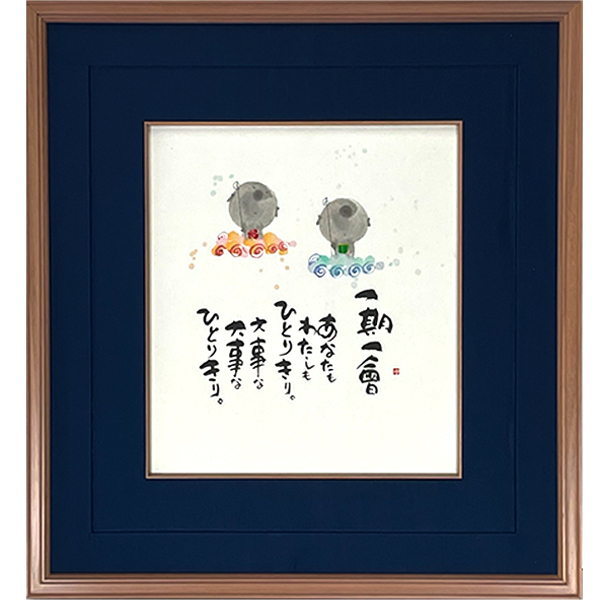 一期一會
あなたも
わたしも
ひとりきり。
大事な
大事な
ひとりきり。